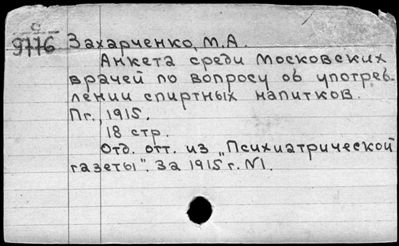 С
9776
Захарченко, М.А.
Анкета среди Московских
врачей по вопросу об употреб-
лении спиртных напитков.
Пг. 1915.
18 стр.
Отд. отт. из „Психиатрической
газеты". За 1915 г. №1.